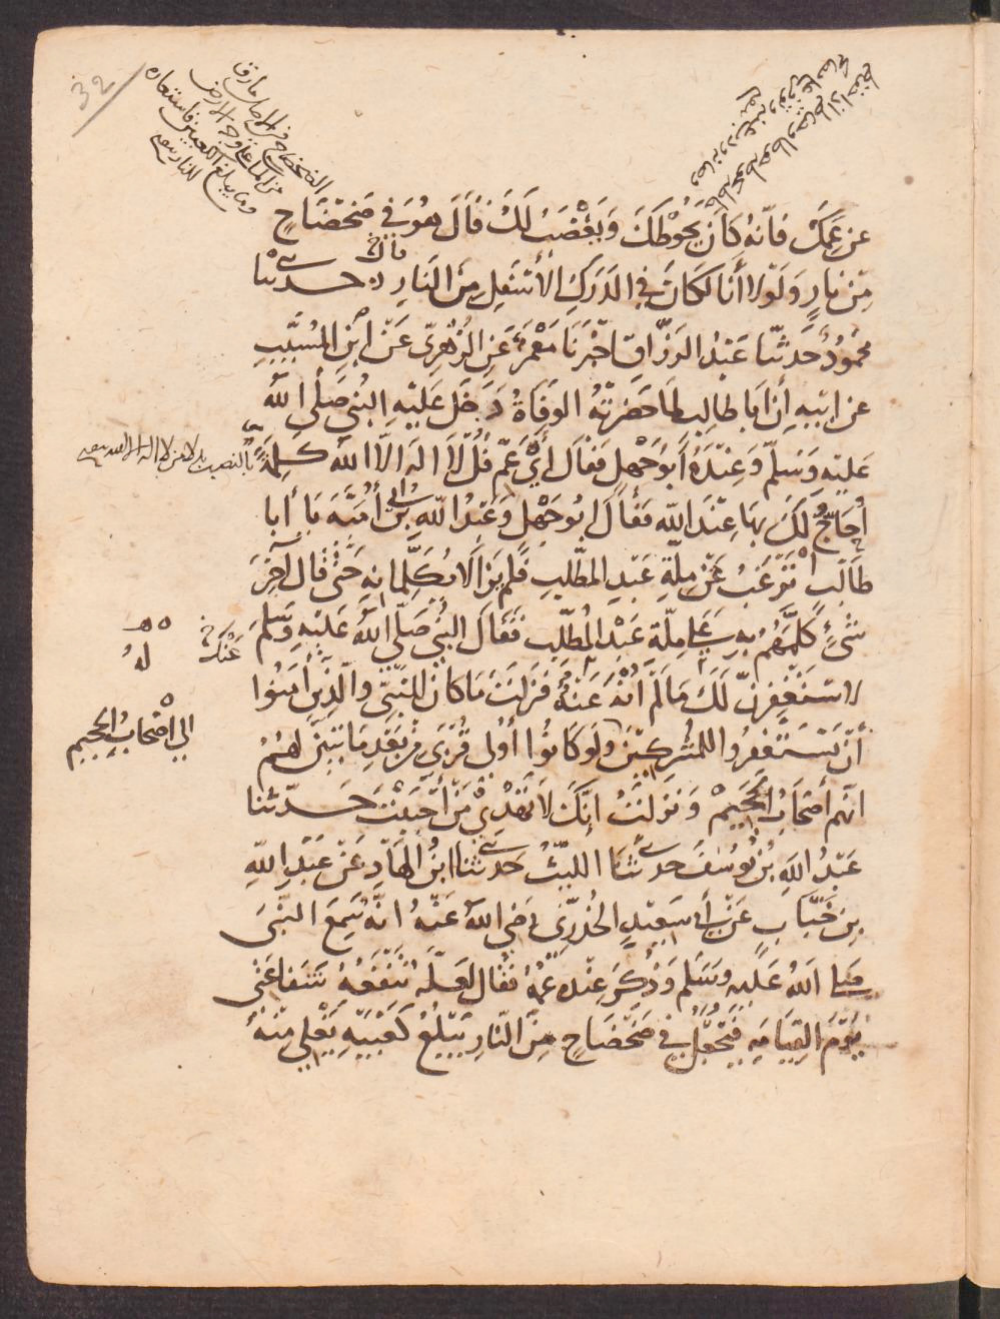 32
الضحضاح في الاصل ما رق
من الماء على وجه الارض
وما يبلغ الكعبين فاستعاره
للنار
عن عمك فانه كان يحوطك ويغضب لك قال هو في ضحضاح
من نار ولولا أنا لكان في الدرك الأسفل من النار حدثنا
محمود حدثنا عبد الرزاق اخبرنا معمر عن الزهري عن ابن المسيب
عن ابيه أن أبا طالب لما حضرته الوفاة دخل عليه النبي صلى الله
عليه وسلم وعنده أبو جهل فقال أي عم قل لا اله الا الله كلمة
بالنصب بدلا من لا اله الا الله
أحاج لك بها عند الله فقال ابو جهل وعبد الله بن أبي أمية يا أبا
طالب ترغب عن ملة عبد المطلب فلم يزالا يكلمانه حتى قال آخر
شيء كلمهم به على ملة عبد المطلب فقال النبي صلى الله عليه وسلم
عنك خ
له
لاستغفرن لك ما لم أنه عنه فنزلت ما كان للنبي والذين آمنوا
أن يستغفروا للمشركين ولو كانوا أولي قربى من بعد ما تبين لهم
الى اصحاب الجحيم
انهم أصحاب الجحيم ونزلت إنك لا تهدي من أحببت حدثنا
عبد الله بن يوسف حدثنا الليث حدثنا ابن الهاد عن عبد الله
بن خباب عن أبي سعيد الخدري رضي الله عنه انه سمع النبي
صلى الله عليه وسلم وذكر عنده عمه فقال لعله تنفعه شفاعتي
يوم القيامة فيجعل في ضحضاح من النار يبلغ كعبيه يغلي منه